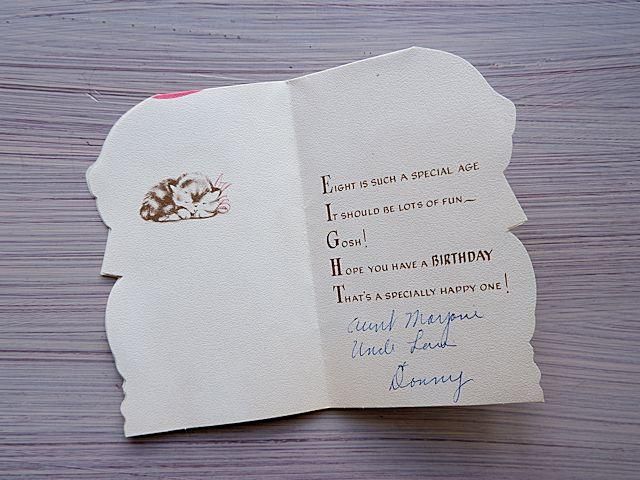 EIGHT IS SUCH A SPECIAL AGE
IT SHOULD BE LOTS OF FUN~
GOSH!
HOPE YOU HAVE A BIRTHDAY
THAT'S A SPECIALLY HAPPY ONE!
Aunt Marjorie
Uncle
Donny